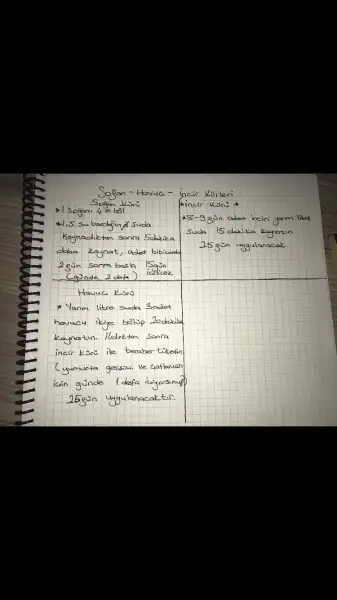 Soğan - Havuç - incir Kürleri
Soğan Kürü
* 1 Soğanı 4'e böl
* 1,5 su bardağı suda
Kaynadıktan sonra 5 dakika
daha kaynat, adet bitiminden
2 gün sonra başla 15 gün
(günde 2 defa) içilecek
Havuç Kürü
* Yarım litre suda 3 adet
havucu ikiye bölüp 20 dakika
kaynatın. sonra
incir kürü ile beraber tüketin
(yumurta gelişimi ve çatlaması
için günde 1 defa içiyorsunuz)
25 gün uygulanacaktır.
* incir Kürü *
* 8-9 adet incir yarım litre
suda 15 dakika kaynatın
25 gün uygulanacak